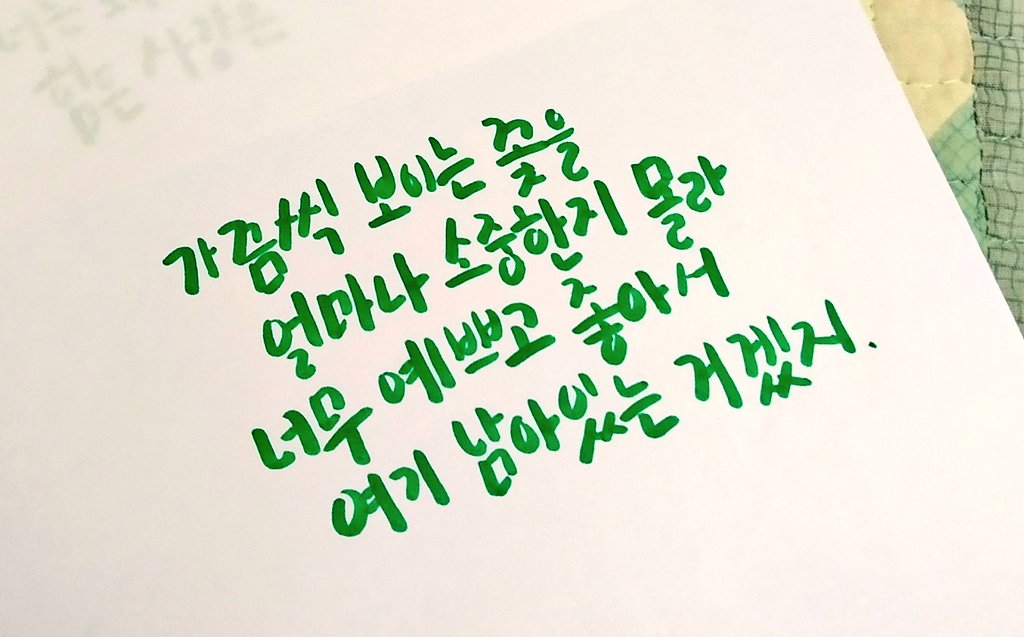 사랑은
가끔씩 보이는 꽃을
얼마나 소중한지 몰라
너무 예쁘고 좋아서
여기 남아있는 거겠지.